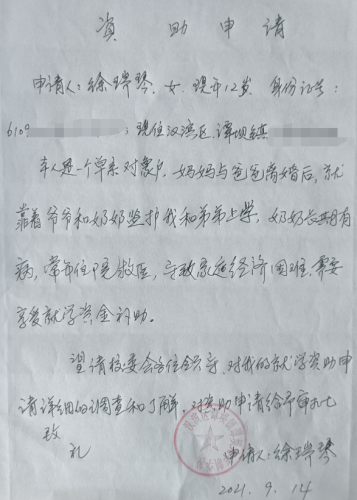 资助申请
申请人:徐瑞琴,女,现年12岁,身份证号:
6109 ;现住汉滨区谭坝镇
本人是一个单亲对象户,妈妈与爸爸离婚后,就
靠着爷爷和奶奶监护我和弟弟上学,奶奶长期有
病,常年住院救医,导致家庭经济困难,需要
享受就学资金补助。
望请校委会各位领导,对我的就学资助申
请详细的调查和了解,对资助申请给予审批
致
礼
申请人:徐瑞琴
2021.9.14